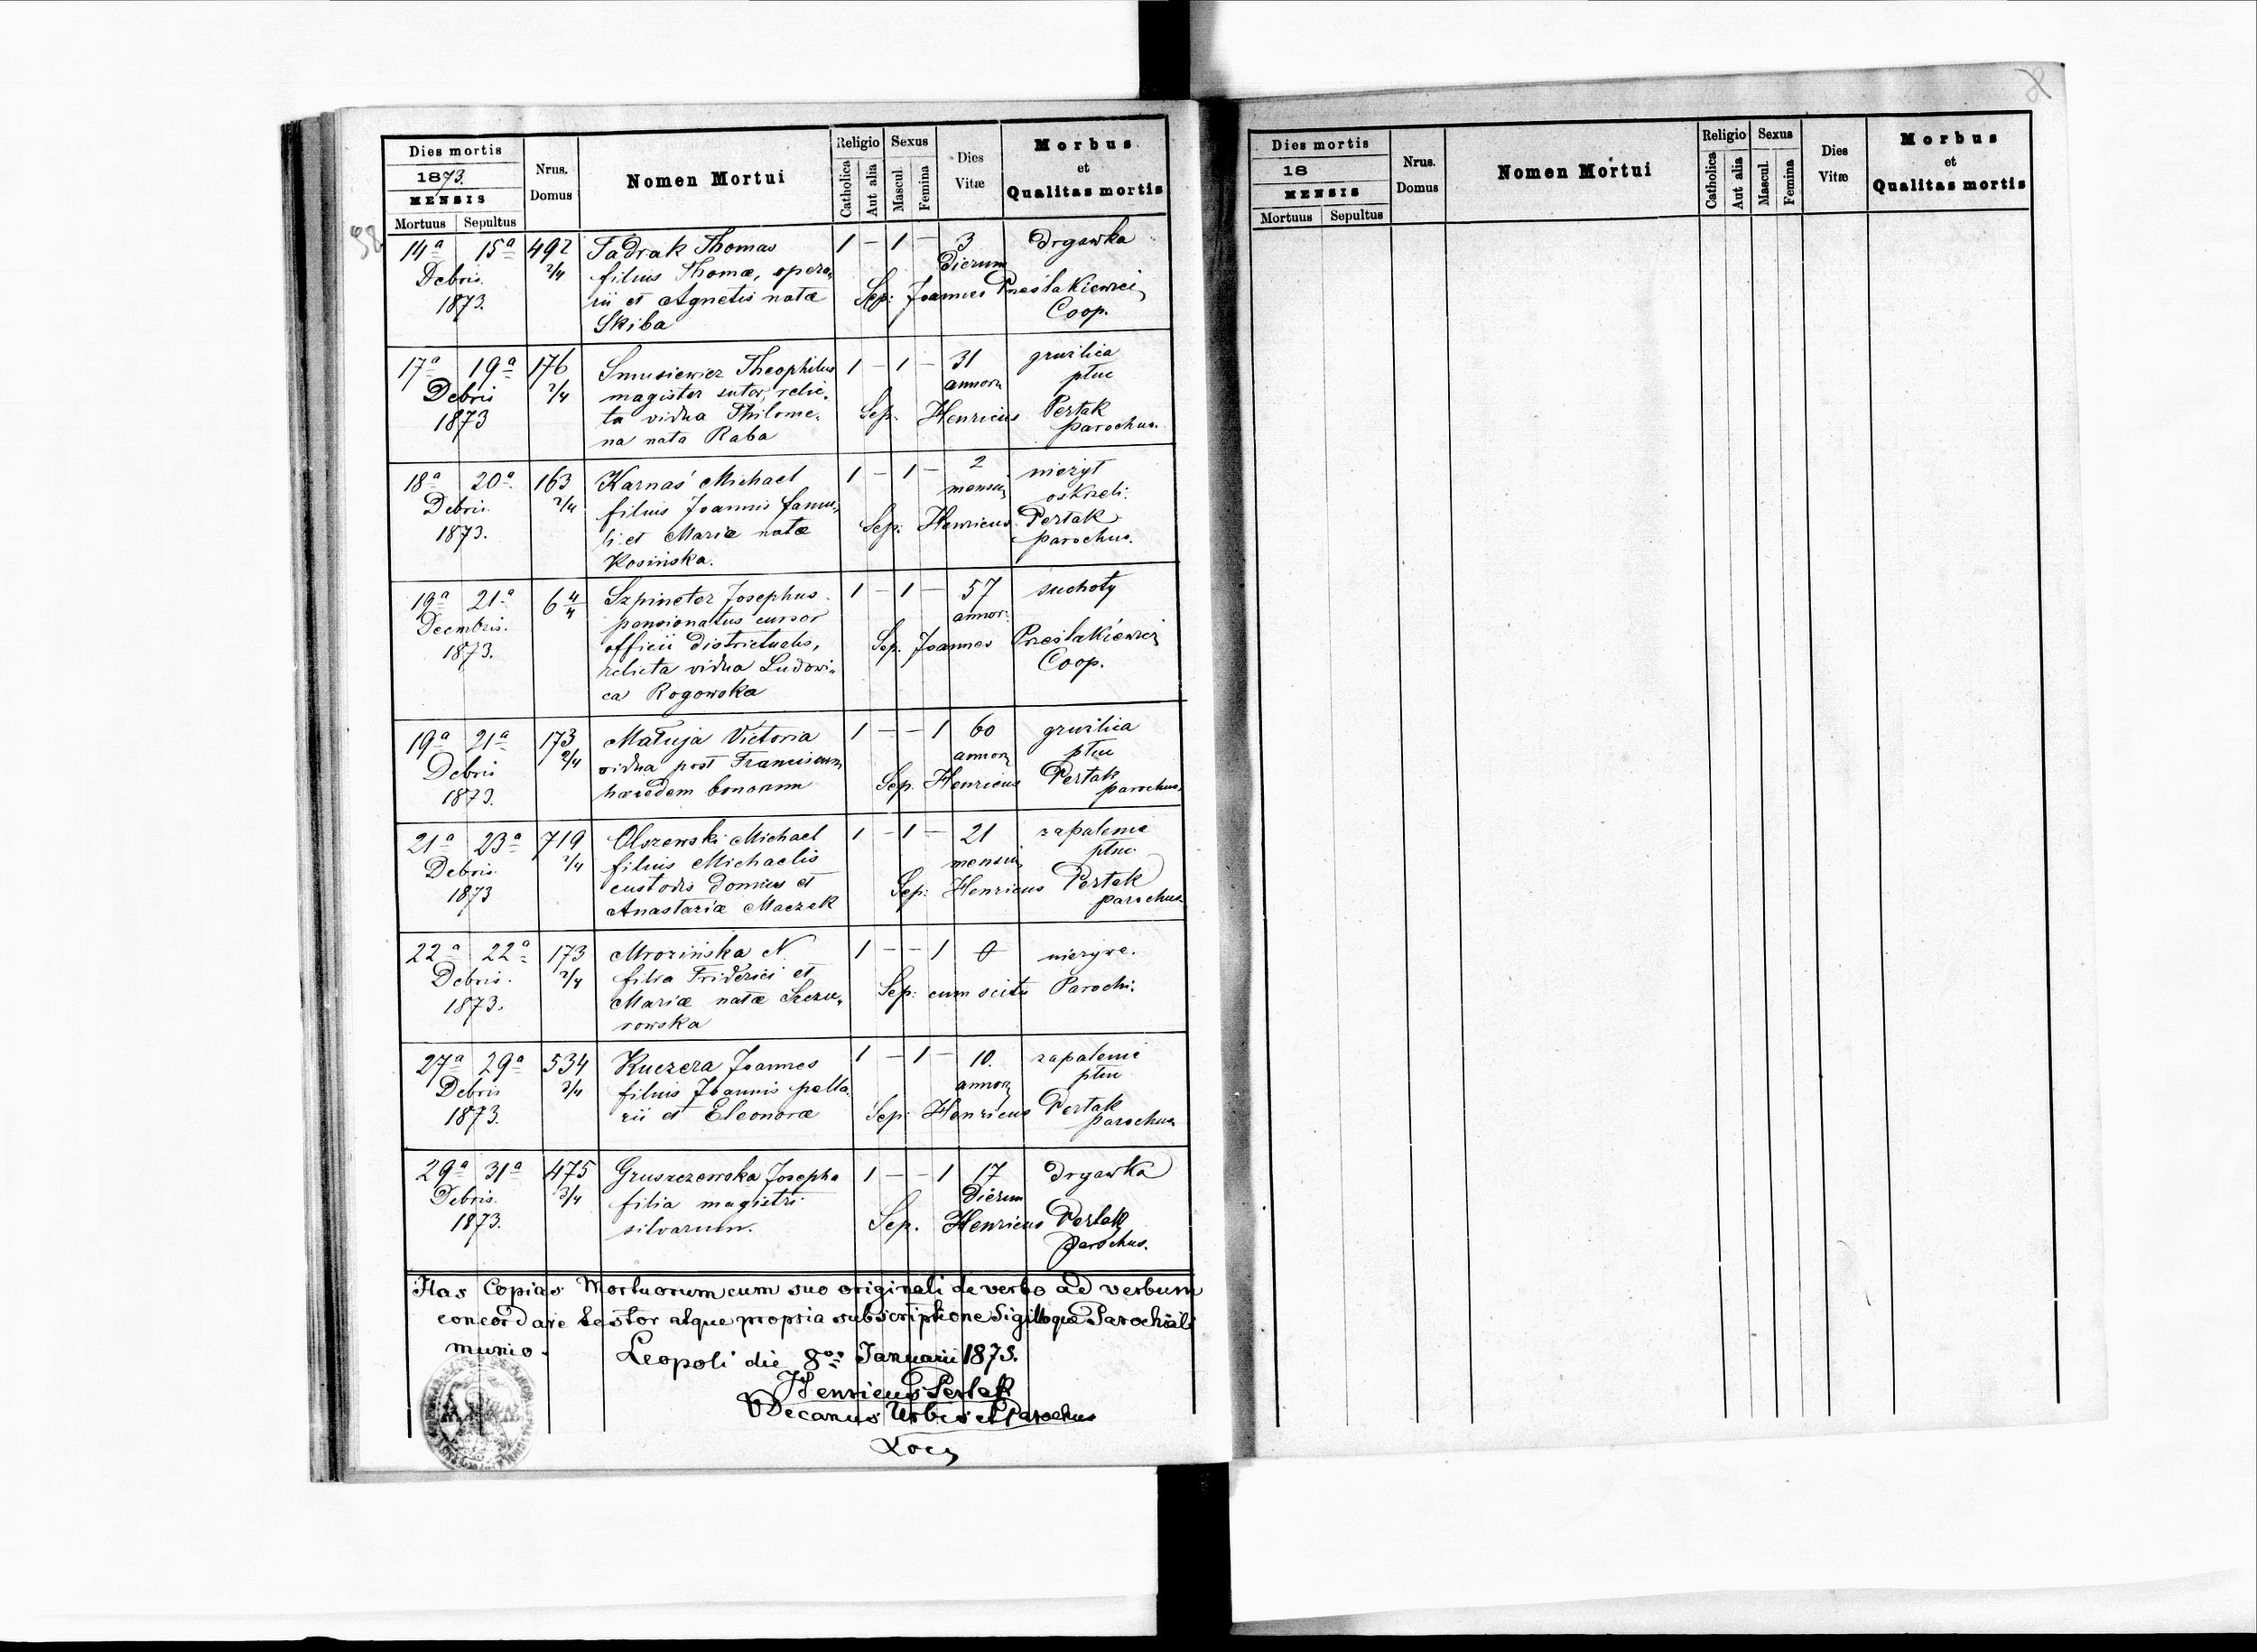 98
Dies mortis
1873.
MENSIS
Mortuus Sepultus
Nrus. Domus
Nomen Mortui
Religio
Catholica
Aut alia
Sexus
Mascul.
Femina
Dies Vitæ
Morbus
et
Qualitas mortis
14a 15a 492 Tadrak Thomas 1 – 1 – 3 drgawka
Debris. 2/4 filius Thomæ, opera„ dierum
1873. rii et Agnetis natæ Sep: Joannes Prześlakiewicz
Skiba Coop.
17a 19a 176 Smusiewicz Theophilus 1 – 1 – 31 gruźlica
Debris 2/4 magister sutor, relic„ annor. płuc
1873 ta vidua Philome„ Sep. Henricus Pertak
na nata Raba parochus.
18a 20a 163 Karnaś Michael 1 – 1 – 2 nieżyt
Debris. 2/4 filius Joannis famu„ mensiu oskrzeli.
1873. li et Mariæ natæ Sep: Henricus Pertak
Kosińska. parochus.
19a 21a 6 4/4 Szpineter Josephus 1 – 1 – 57 suchoty
Decembris. pensionatus cursor annor.
1873. officii districtualis, Sep. Joannes Prześlakiewicz
relicta vidua Ludovi„ Coop.
ca Rogowska
19a 21a 173 Matuja Victoria 1 – – 1 60 gruźlica
Debris 2/4 vidua post Franciscum annor. płuc
1873. hæredem bonorum Sep. Henricus Pertak
parochus.
21a 23a 719 Olszewski Michael 1 – 1 – 21 zapalenie
Debris. 2/4 filius Michaelis mensiu płuc.
1873 custodis domus et Sep: Henricus Pertak
Anastaziæ Maczek parochus
22a 22a 173 Mrozińska N. 1 – – 1 0 nieżywe.
Debris. 2/4 filia Friderici et
1873. Mariæ natæ Szczu„ Sep: cum scitu Parochi.
rowska
27a 29a 534 Kuczera Joannes 1 – 1 – 10. zapalenie
Debris 2/4 filius Joannis pella„ annor. płuc
1873. rii et Eleonoræ Sep: Henricus Pertak
parochus
29a 31a 475 Gruszczewska Josepha 1 – – 1 17 drgawka
Debris. 3/4 filia magistri dierum
1873. silvarum. Sep. Henricus Pertak
parochus.
Has Copias Mortuorum cum suo originali de verbo ad verbum
concordare testor atque propria subscriptione Sigilloque Parochiali
munio.
Leopoli die 8va Januarii 1875.
Henricus Pertak
Decanus Urbis et Parochus
Loci
Dies mortis
18
MENSIS
Mortuus Sepultus
Nrus. Domus
Nomen Mortui
Religio
Catholica
Aut alia
Sexus
Mascul.
Femina
Dies Vitæ
Morbus
et
Qualitas mortis